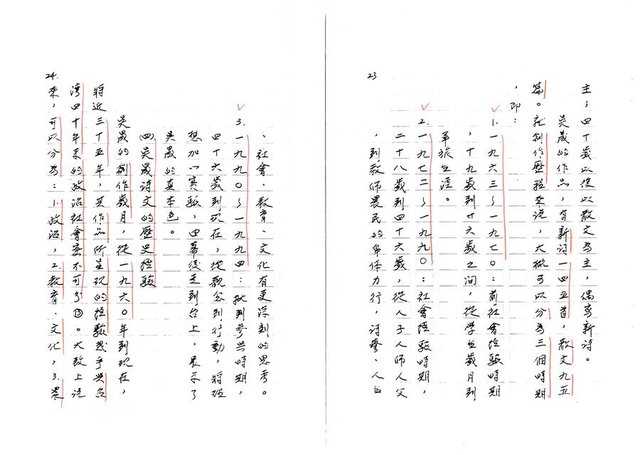 23
主；四十歲以後以散文為主，偶寫新詩。
吳晟的作品，有新詩一四五首，散文九五
篇。就創作歷程來說，大概可以分為三個時期
，即：
1.一九六三～一九七〇：前社會經驗時期
，十九歲到廿六歲之間，從學生歲月到
軍旅生涯。
2.一九七二～一九九〇：社會經驗時期，
二十八歲到四十六歲，從人子人師人父
，到教師農民的身体力行，詩藝、人生
、社會、教育、文化有更深刻的思考。
3.一九九〇～一九九四：批判參與時期，
四十六歲到現在，從觀念到行動，將理
想加以實驗，由幕後走到台上，展示了
吳晟的真本色。
(四)吳晟詩文的歷史經驗
吳晟的創作歲月，從一九六〇年到現在，
將近三十五年，其作品所呈現的經驗幾乎與台
灣四十年來的政治社會密不可分。大致上說
來，可以分為：1.政治，2.教育、文化，3.農
24.